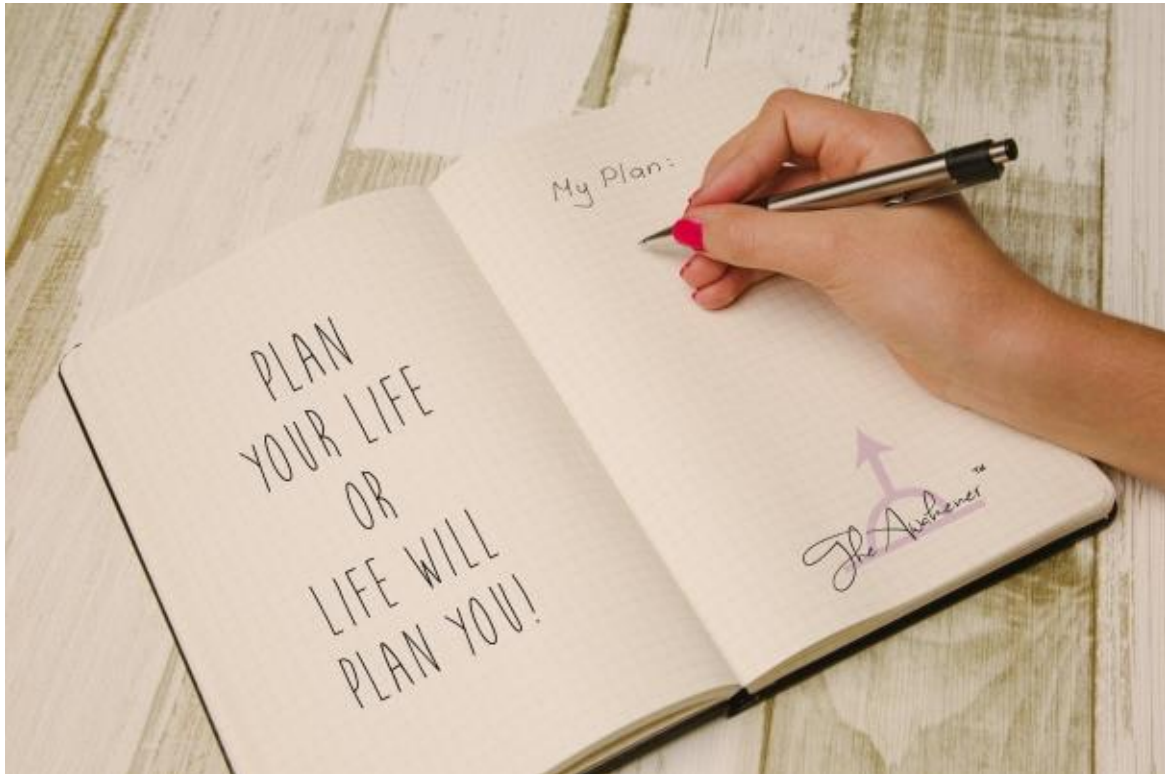 PLAN
YOUR LIFE
OR
LIFE WILL
PLAN YOU!
My Plan:
The Awakener™